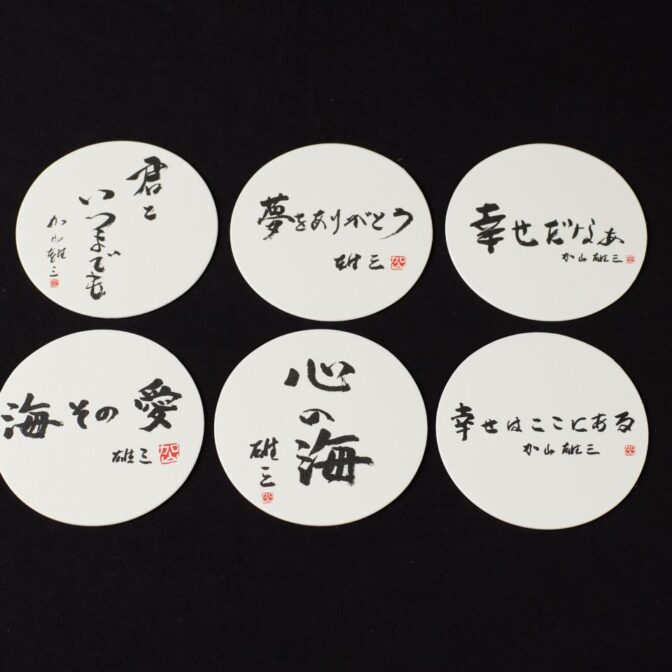 君と
いつまでも
加山雄三
夢をありがとう
雄三
幸せだなぁ
加山雄三
海その愛
雄三
心の海
雄三
幸せはここにある
加山雄三